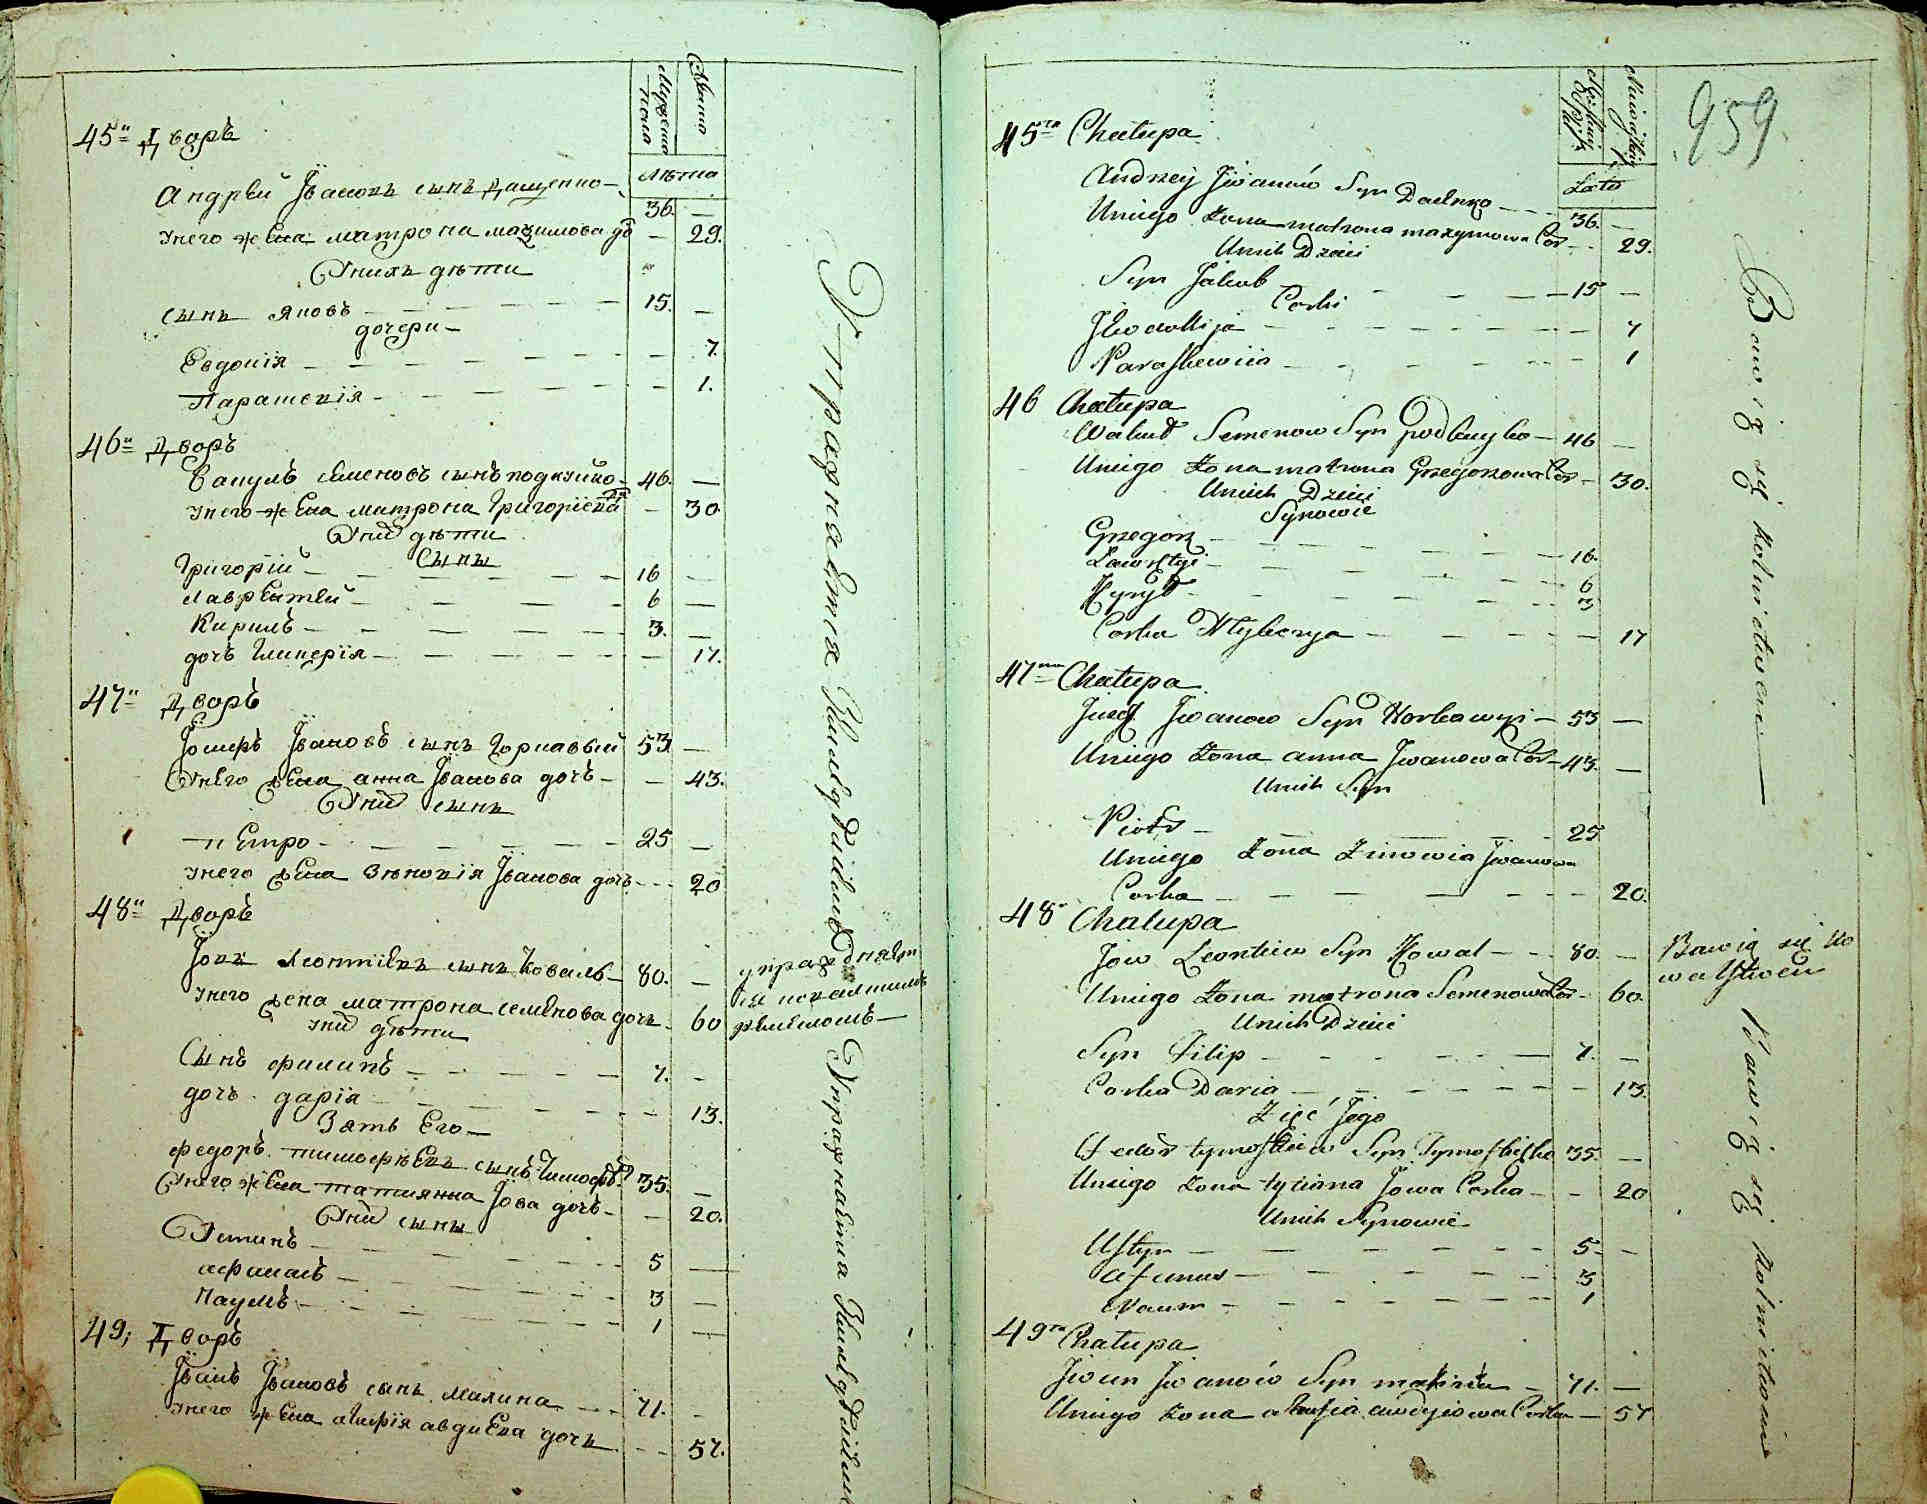 Мужеска пола
Женска
Лѣта
45й Дворъ
Андрей Ївановъ сынъ Дащенко — 36. —
Унего жена матрона мазимова до — 29.
Унихъ дѣти
Сынъ Яковъ — 15. —
дочери —
Евдокія — 7.
Параскевія — 1.
46й Дворъ
Вакулъ Семеновъ сынъ подкуйко — 46. —
Унего жена матрона Григоріева дч — 30
Уних дѣти
Сыны
Григорій — 16 —
Лаврентей — 6 —
Кирилъ — 3. —
дочъ Гликерія — 17.
47й Дворъ
Їосиръ Ївановъ сынъ Горкавый 53 —
Унего жена анна Їванова дочъ — 43.
Уних сынъ
петро — 25 —
Унего жена Зѣновія Їванова дочъ — 20
48й Дворъ
Їовъ Леонтіевъ сынъ Коваль — 80. —
Унего жена матрона семенова дочъ — 60
Уних дѣти
Сынъ филипъ — 7. —
дочъ дарія — 13.
Зять Его —
федоръ тимофѣевъ сынъ Тимоф. 35. —
Унего жена татиянна Їова дочъ — 20.
Уних сыны
Устинъ — 5 —
афанасъ — 3 —
Наумъ — 1 —
49, Дворъ
Їванъ Ївановъ сынъ Малина — 71. —
Унего жена авдиева дочъ — 57.
Упражнается
упражнает
ся
ремесломъ —
Упражнается
959.
Lata
45ta Chałupa
Andrzey Jwanów Syn Daclnko — 36. —
Uniego Żona matrona maxymowa Cór — 29.
Unich Dzieci
Syn Jakub — 15 —
Corki
Jewdokija — 7
Paraskewiia — 1
46 Chałupa
Wakuł Semenow Syn Podkuyko — 46 —
Uniego Żona matrona Grzegorzowa Cór — 30.
Unich Dzieci
Synowie
Grzegorz — 16.
Ławrętyi — 6
Kyryło — 3
Corka Hlykerya — 17
47ma Chałupa
Juzef Jwanow Syn Horkawyi — 53 —
Uniego Żona anna Jwanowa Cór — 43. —
Unich Syn
Piotr — 25
Uniego Żona Zinowia Jwanowa
Corka — 20.
48 Chałupa
Jow Leontiew Syn Kowal — 80. —
Uniego Żona matrona Semenowa Cór — 60
Unich Dzieci
Syn Filip — 7. —
Corka Daria — 13.
Zięć Jego
Fedor tymofieiew Syn 35. —
Uniego Żona tyciana Jowa Corka — 20
Unich Synowie
Ustyn — 5 —
afanas — 3
Naum — 1
49ta Chałupa
Jwan Jwanów Syn — 71. —
Uniego Żona awdyiowa Corka — 57
Bawią się
Bawią się ko
walstwem
Bawią się